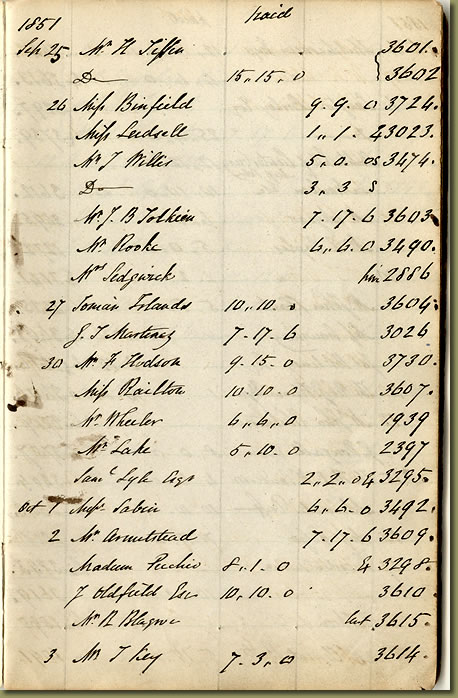 1851 paid
Sep 25 Mr H Tiffin 3601.
Do 15,,15,,0 3602
26 Miss Binfield 9.9.0 3724.
Miss Ledsell 1,,1. & 3023.
Mr J Willis 5,,0. os 3474.
Do 3,,3 S
Mr J. B Tolkien 7.17.6 3603
Mr Rooke 6,,6.0 3490.
Mrs Sedgwick him 2886
27 Ionian Islands 10,,10.0 3604.
J. T Martinez 7-17.6 3026
30 Mr H Hodson 9.15.0 3730.
Miss Railton 10.10.0 3607.
Mr Wheeler 6,,6,,0 1939
Mr Lake 5,,10.0 2397
Saml Lyle Esqr 2,,2,,0 & 3295.
Oct 1 Miss Sabin 6,,6.0 3492.
2 Mr Armitstead 7.17.6 3609.
Madam 8,,1.0 & 3298.
J Oldfield Esr 10,,10.0 3610
Mr R Blagrove let 3615.
3 Mr T Key 7.3,,0 3614.